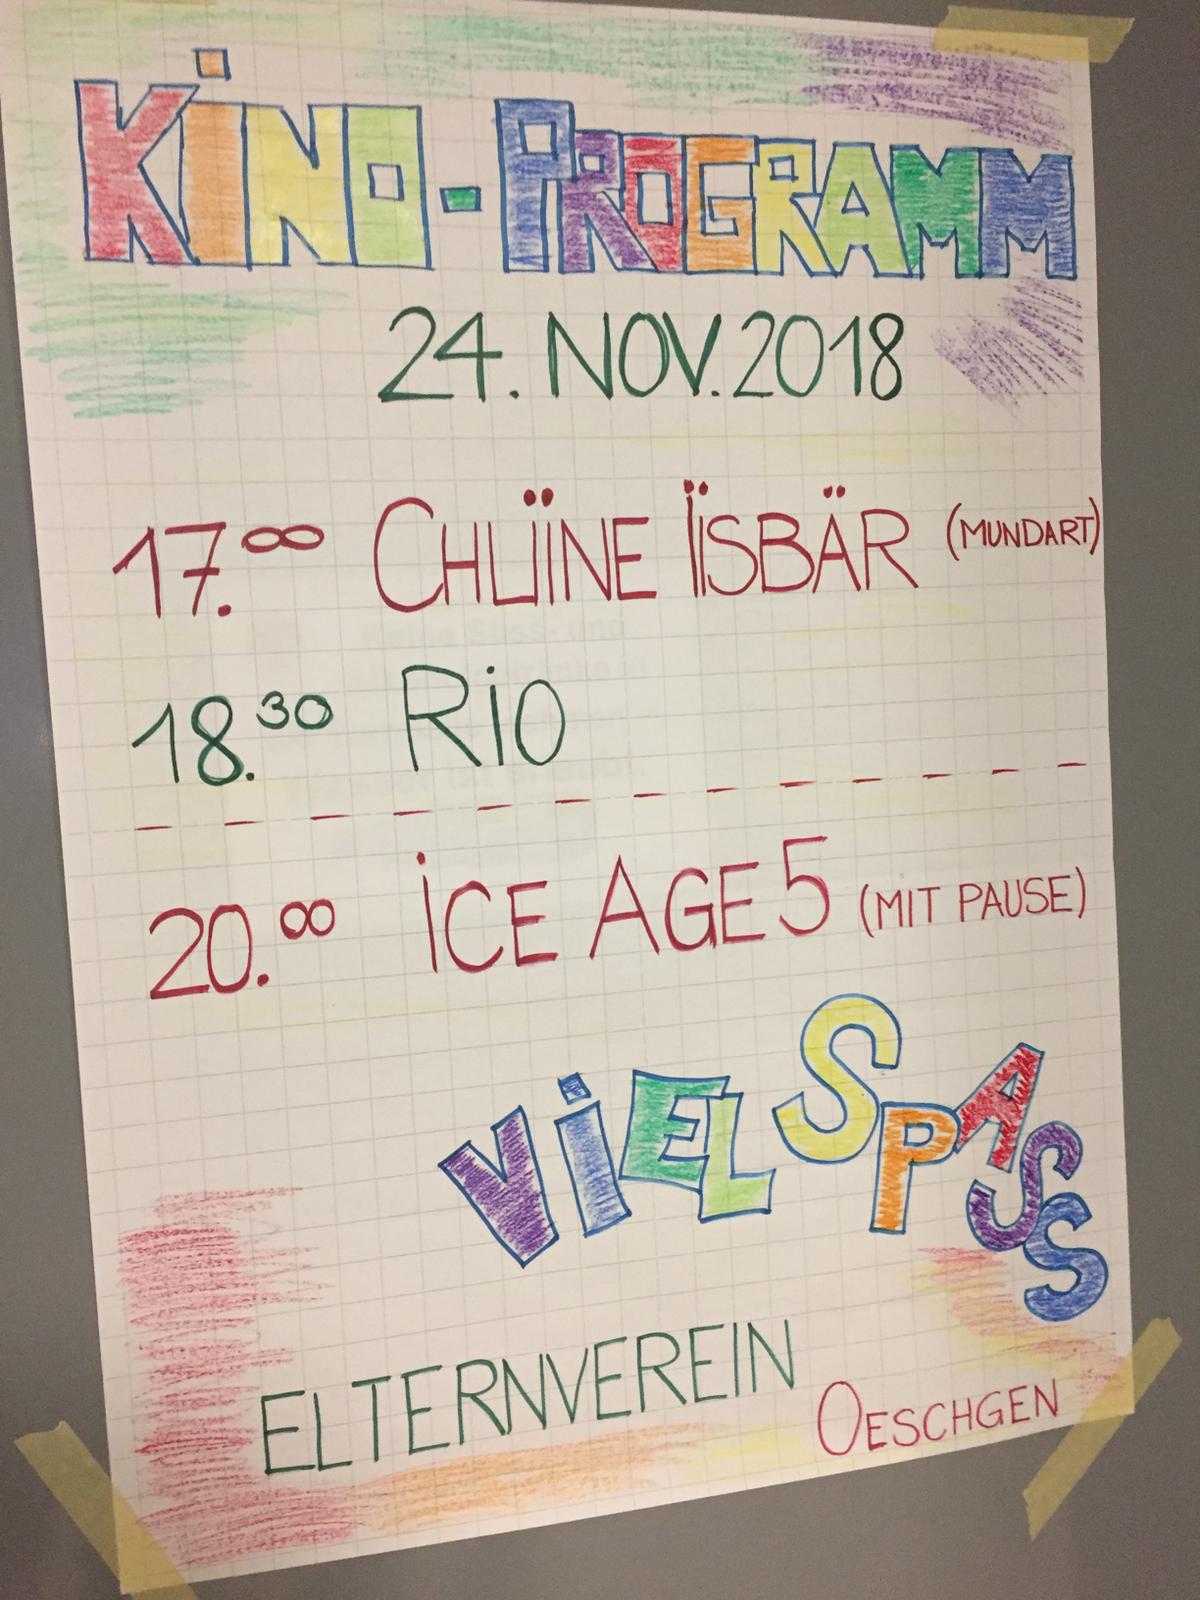 KiNO-PROGRAMM
24. NOV. 2018
17.00 CHLÏINE ÏISBÄR (MUNDART)
18.30 RiO
20.00 iCE AGE 5 (MIT PAUSE)
ViEL SPASS
ELTERNVEREIN
OESCHGEN